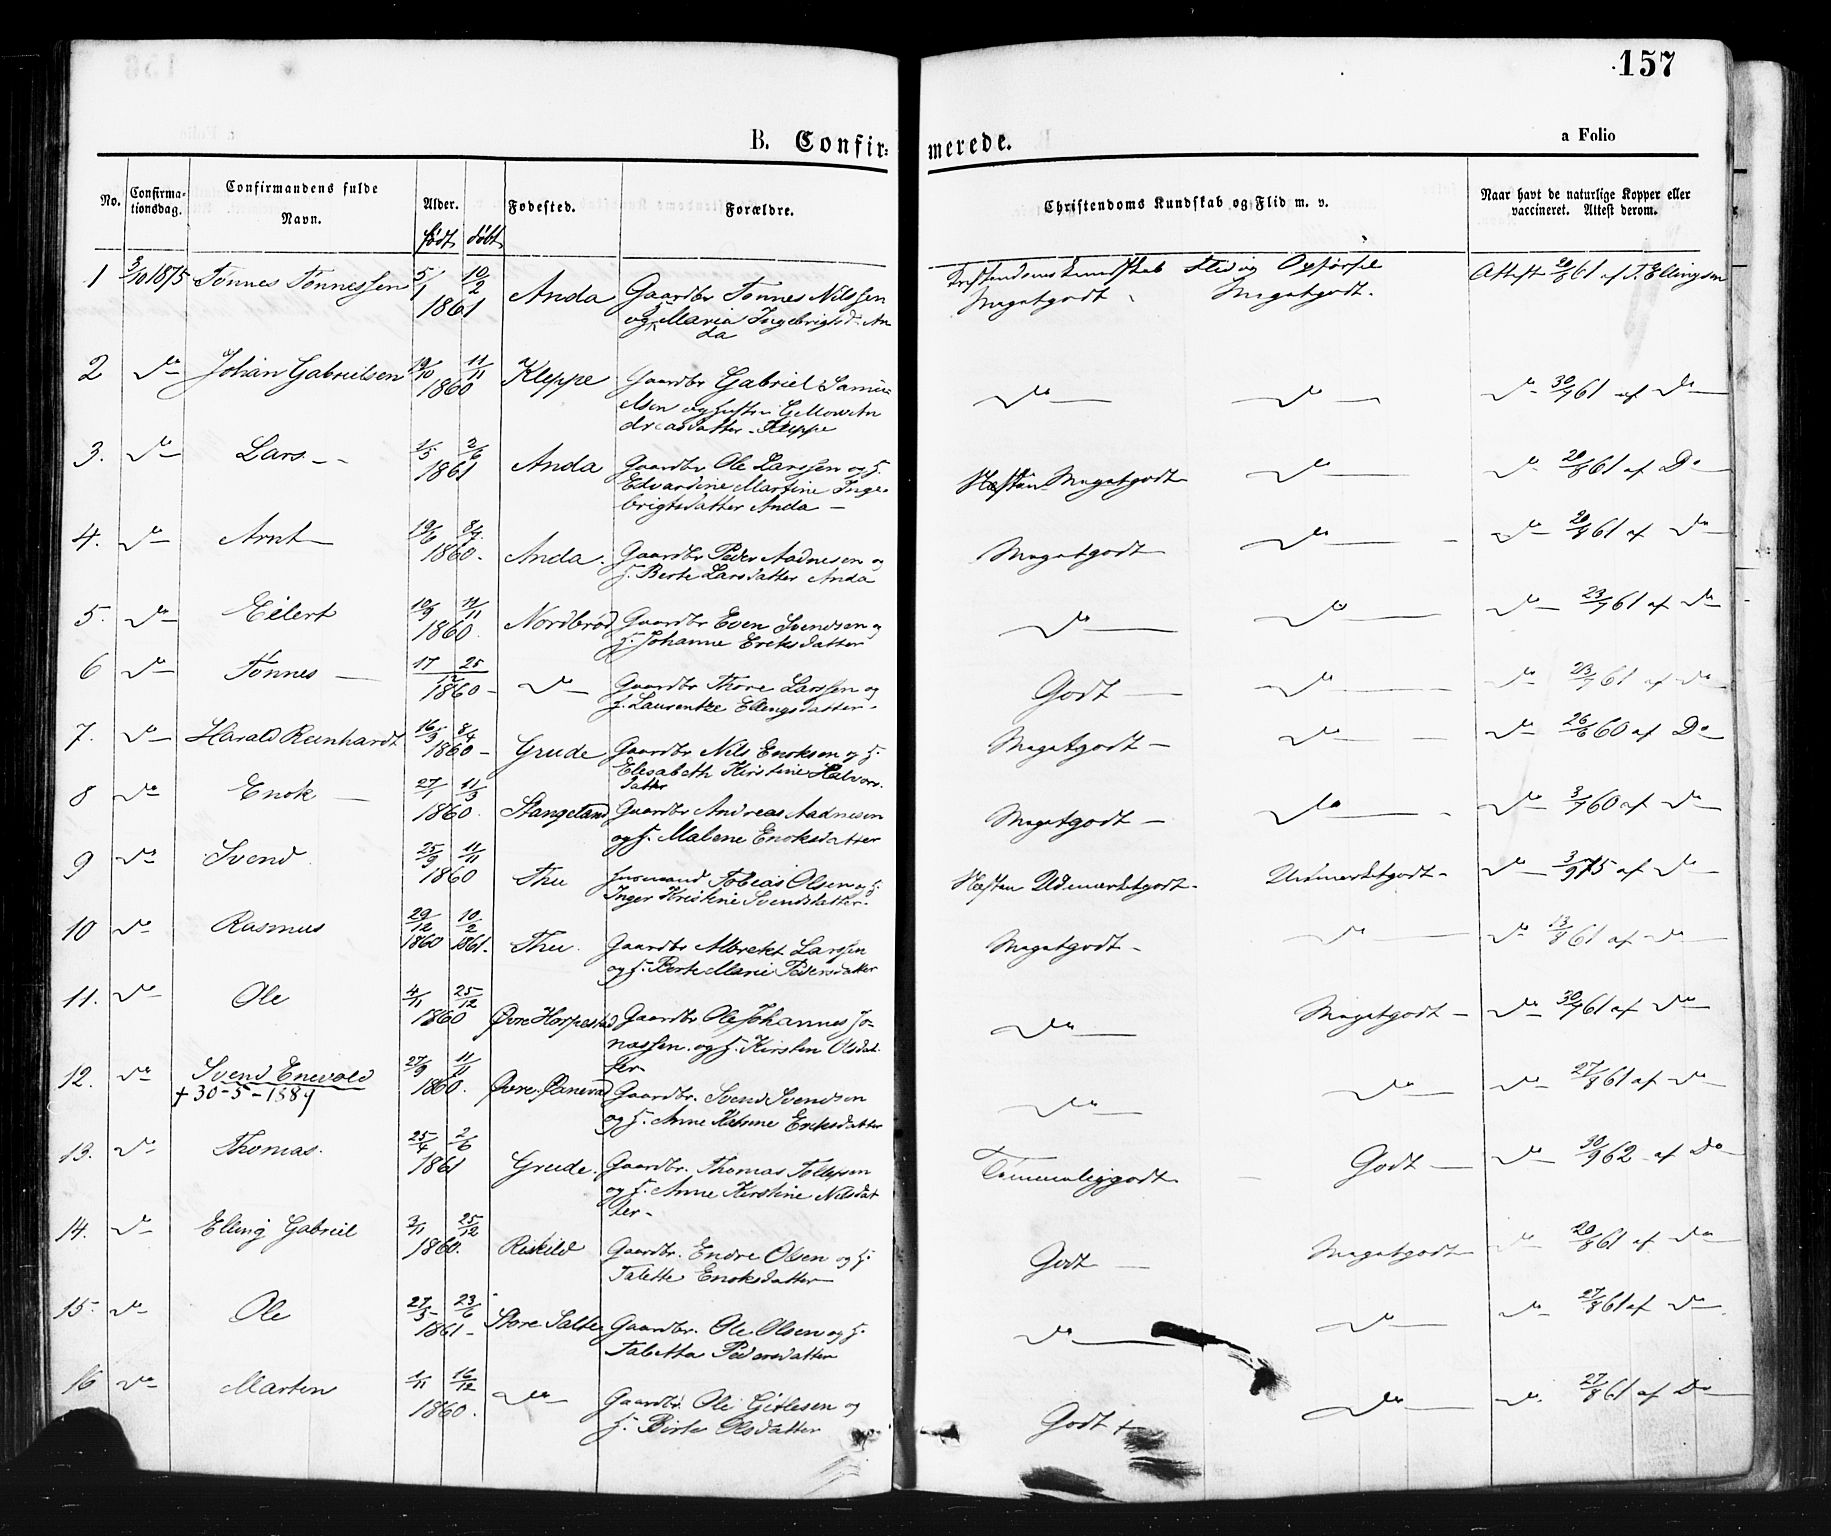 157
B. Confir- merede.
a Folio
No. Confirma- tionsdag. Confirmandens fulde Navn. Alder. født døbt Fødested. Forældre. Christendoms Kundskab og Flid m. v. Naar havt de naturlige Kopper eller vaccineret. Attest derom.
1 3/10 1875 Tønnes Tønnessen 5/1 10/2 1861 Anda Gaardbr Tønnes Nilssen
og Maria Ingebrigtsd. An
da
Kristendomskundskab Flid og Opførsel
Megetgodt Megetgodt. Attest 20/8 61 af T. Ellingsen
2 Do Johan Gabrielsen 19/10 11/11 1860 Kleppe Gaardbr Gabriel Samu
elsen og Hustru
dreasdatter Kleppe
Do Do Do 30/7 61 af Do
3. Do Lars 1/5 2/6 1861 Anda Gaardbr Ole Larssen og H.
Edvardine Martine Inge-
brigtsdatter Anda
Næsten Megetgodt Do Do 20/8 61 af Do
4. Do Arnt 8/7 1860 Anda. Gaardbr Peder Aadnesen og
H. Berte Larsdatter Anda
Megetgodt Do Do 20/8 61 af Do
5. Do Eilert 11/11 1860. Nordbrød Gaardbr Even Svendsen og
H. Johanne Ereksdatter
Do Do Do 23/7 61 af Do
6 Do Tønnes 17 25/12 1860 Do Gaardbr Thore Larssen og
H. Laurentze Ellengsdatter
Godt Do Do 23/7 61 af Do
7. Do Harald Reinhardt 16/3 8/4 1860 Grude Gaardbr Nils Enoksen og H.
Elesabeth Kirstine Halvors
datter
Megetgodt Do Do 26/6 60 af Do
8 Do Enok 27/1 11/3 1860. Stangeland Gaardbr Andreas Aadnesen
og H. Malene Enoksdatter
Megetgodt Do Do 3/7 60 af Do
9 Do Svend 25/9 11/11 1860 Thu Tobias Olsen og H.
Inger Kristine Svendsdatter
Næsten Udmærketgodt Udmærketgodt Do 3/9 75 af Do
10 Do Rasmus 29/12 1860 10/2 1861. Thu. Gaardbr Albrekt Larssen
og H. Berte Marie Pedersdatter
Megetgodt Do Do 13/8 61 af Do
11. Do Ole 4/11 25/12 1860 Øvre Horpestad Gaardbr Ole Johannes Jo-
nassen og H. Kirsten Olsdat-
ter
Do Megetgodt Do 30/7 61 af Do
12. Do Svend Enevold 27/9 11/11 1860. Øvre Gaardbr. Svend Svendsen
+ 30-5-1889
og H. Anne Ereksdatter
Do Do Do 27/8 61 af Do
13. Do Thomas. 25/4 2/6 1861 Grude. Gaardbr. Thomas Tollefsen
og H. Anne Kirstine Nilsdat
ter
Temmeliggodt Godt Do 30/9 62 af Do
14. Do Elling Gabriel 3/11 25/12 1860. Reskild Gaardbr. Endre Olsen og H.
Talette Enoksdatter
Godt Megetgodt Do 20/8 61 af Do
15. Do Ole 27/5 23/6 1861 Store Salte Gaardbr. Ole Olsen og H.
Tabetta Pedersdatter
Do Do Do 27/8 61 af Do
16 Do Marten 1/11 16/12 1860. Do Gaardbr. Ole Gitlesen og
H. Birte Olsdatter
Godt + Do Do 27/8 61 af Do